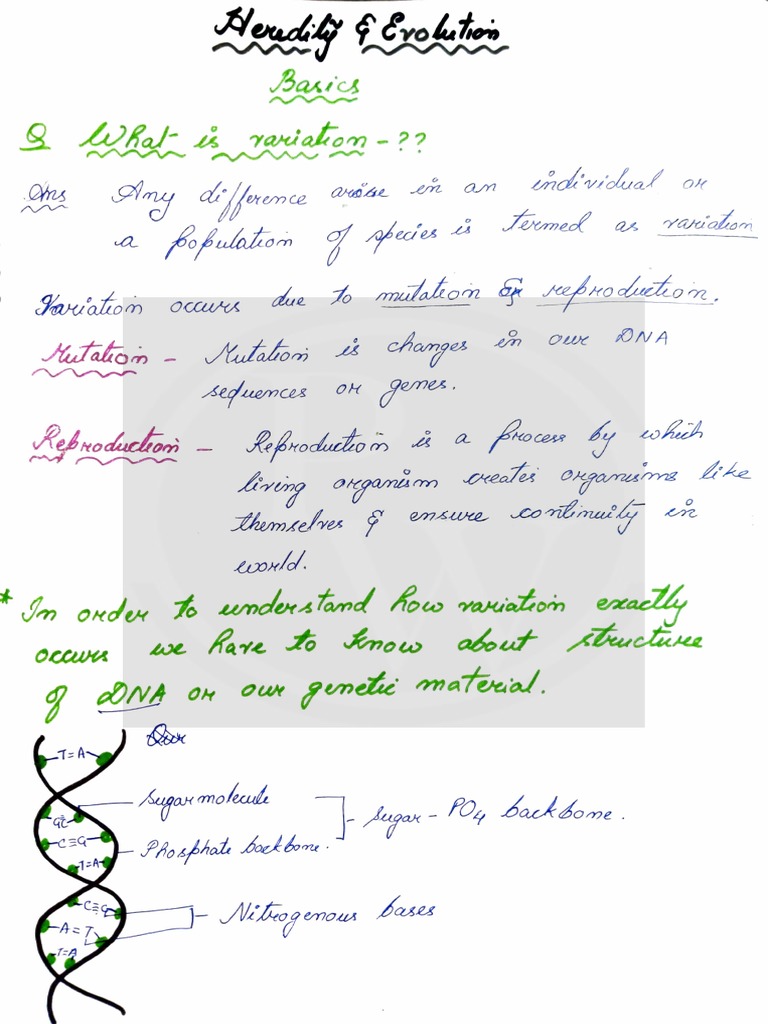 Heredity & Evolution
Basics
Q What is variation - ??
Ans Any difference arose in an individual or
a population of species is termed as variation
Variation occurs due to mutation or reproduction.
Mutation - Mutation is changes in our DNA
sequences or genes.
Reproduction - Reproduction is a process by which
living organism creates organisms like
themselves & ensure continuity in
world.
* In order to understand how variation exactly
occurs we have to know about structure
of DNA or our genetic material.
T=A
Sugar molecule
G≡C
sugar - PO4 backbone.
C≡G
Phosphate backbone.
T=A
C≡G
Nitrogenous bases
A=T
T=A